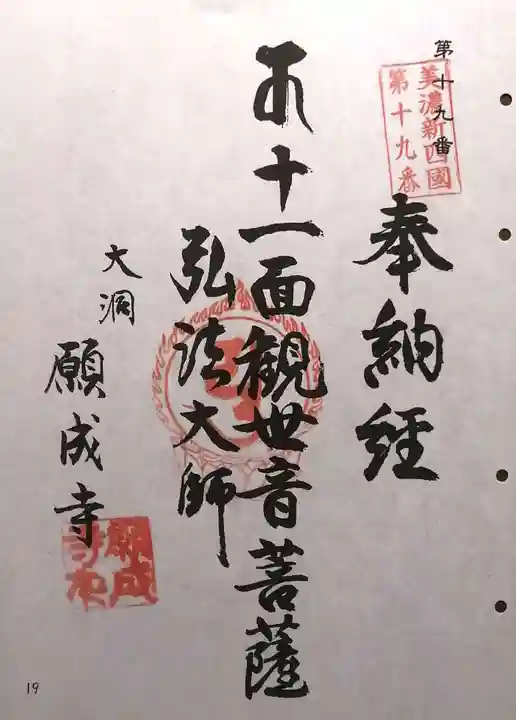 第十九番
美濃新四國
第十九番
奉納経
本十一面観世音菩薩
弘法大師
大洞
願成寺
19